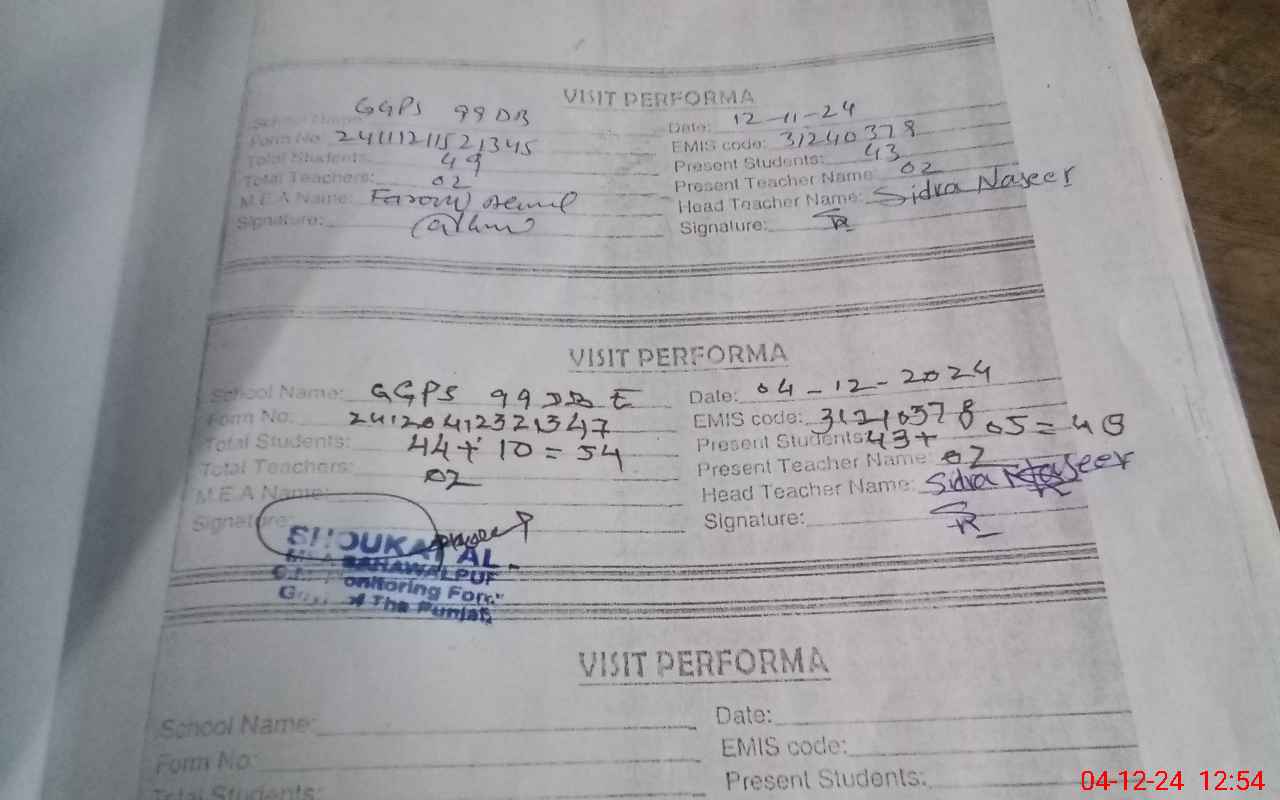 VISIT PERFORMA
School Name: GGPS 99 DB Date: 12-11-24
Form No. 24111211521345 EMIS code: 31240378
Total Students: 49 Present Students: 43
Total Teachers: 02 Present Teacher Name: 02
M.E.A Name: Head Teacher Name: Sidra Naseer
Signature: Signature: SR
VISIT PERFORMA
School Name: GGPS 99 DB E Date: 04-12-2024
Form No: 24120412321347 EMIS code: 31240378
Total Students: 44+10=54 Present Students: 43+05=48
Total Teachers: 02 Present Teacher Name: 02
M.E.A Name: Head Teacher Name: Sidra Naseer
Signature: Signature: SR
SHOUKAT AL
BAHAWALPUR
onitoring Force
The Punjab
VISIT PERFORMA
School Name: Date:
Form No: EMIS code:
Total Students: Present Students:
04-12-24 12:54